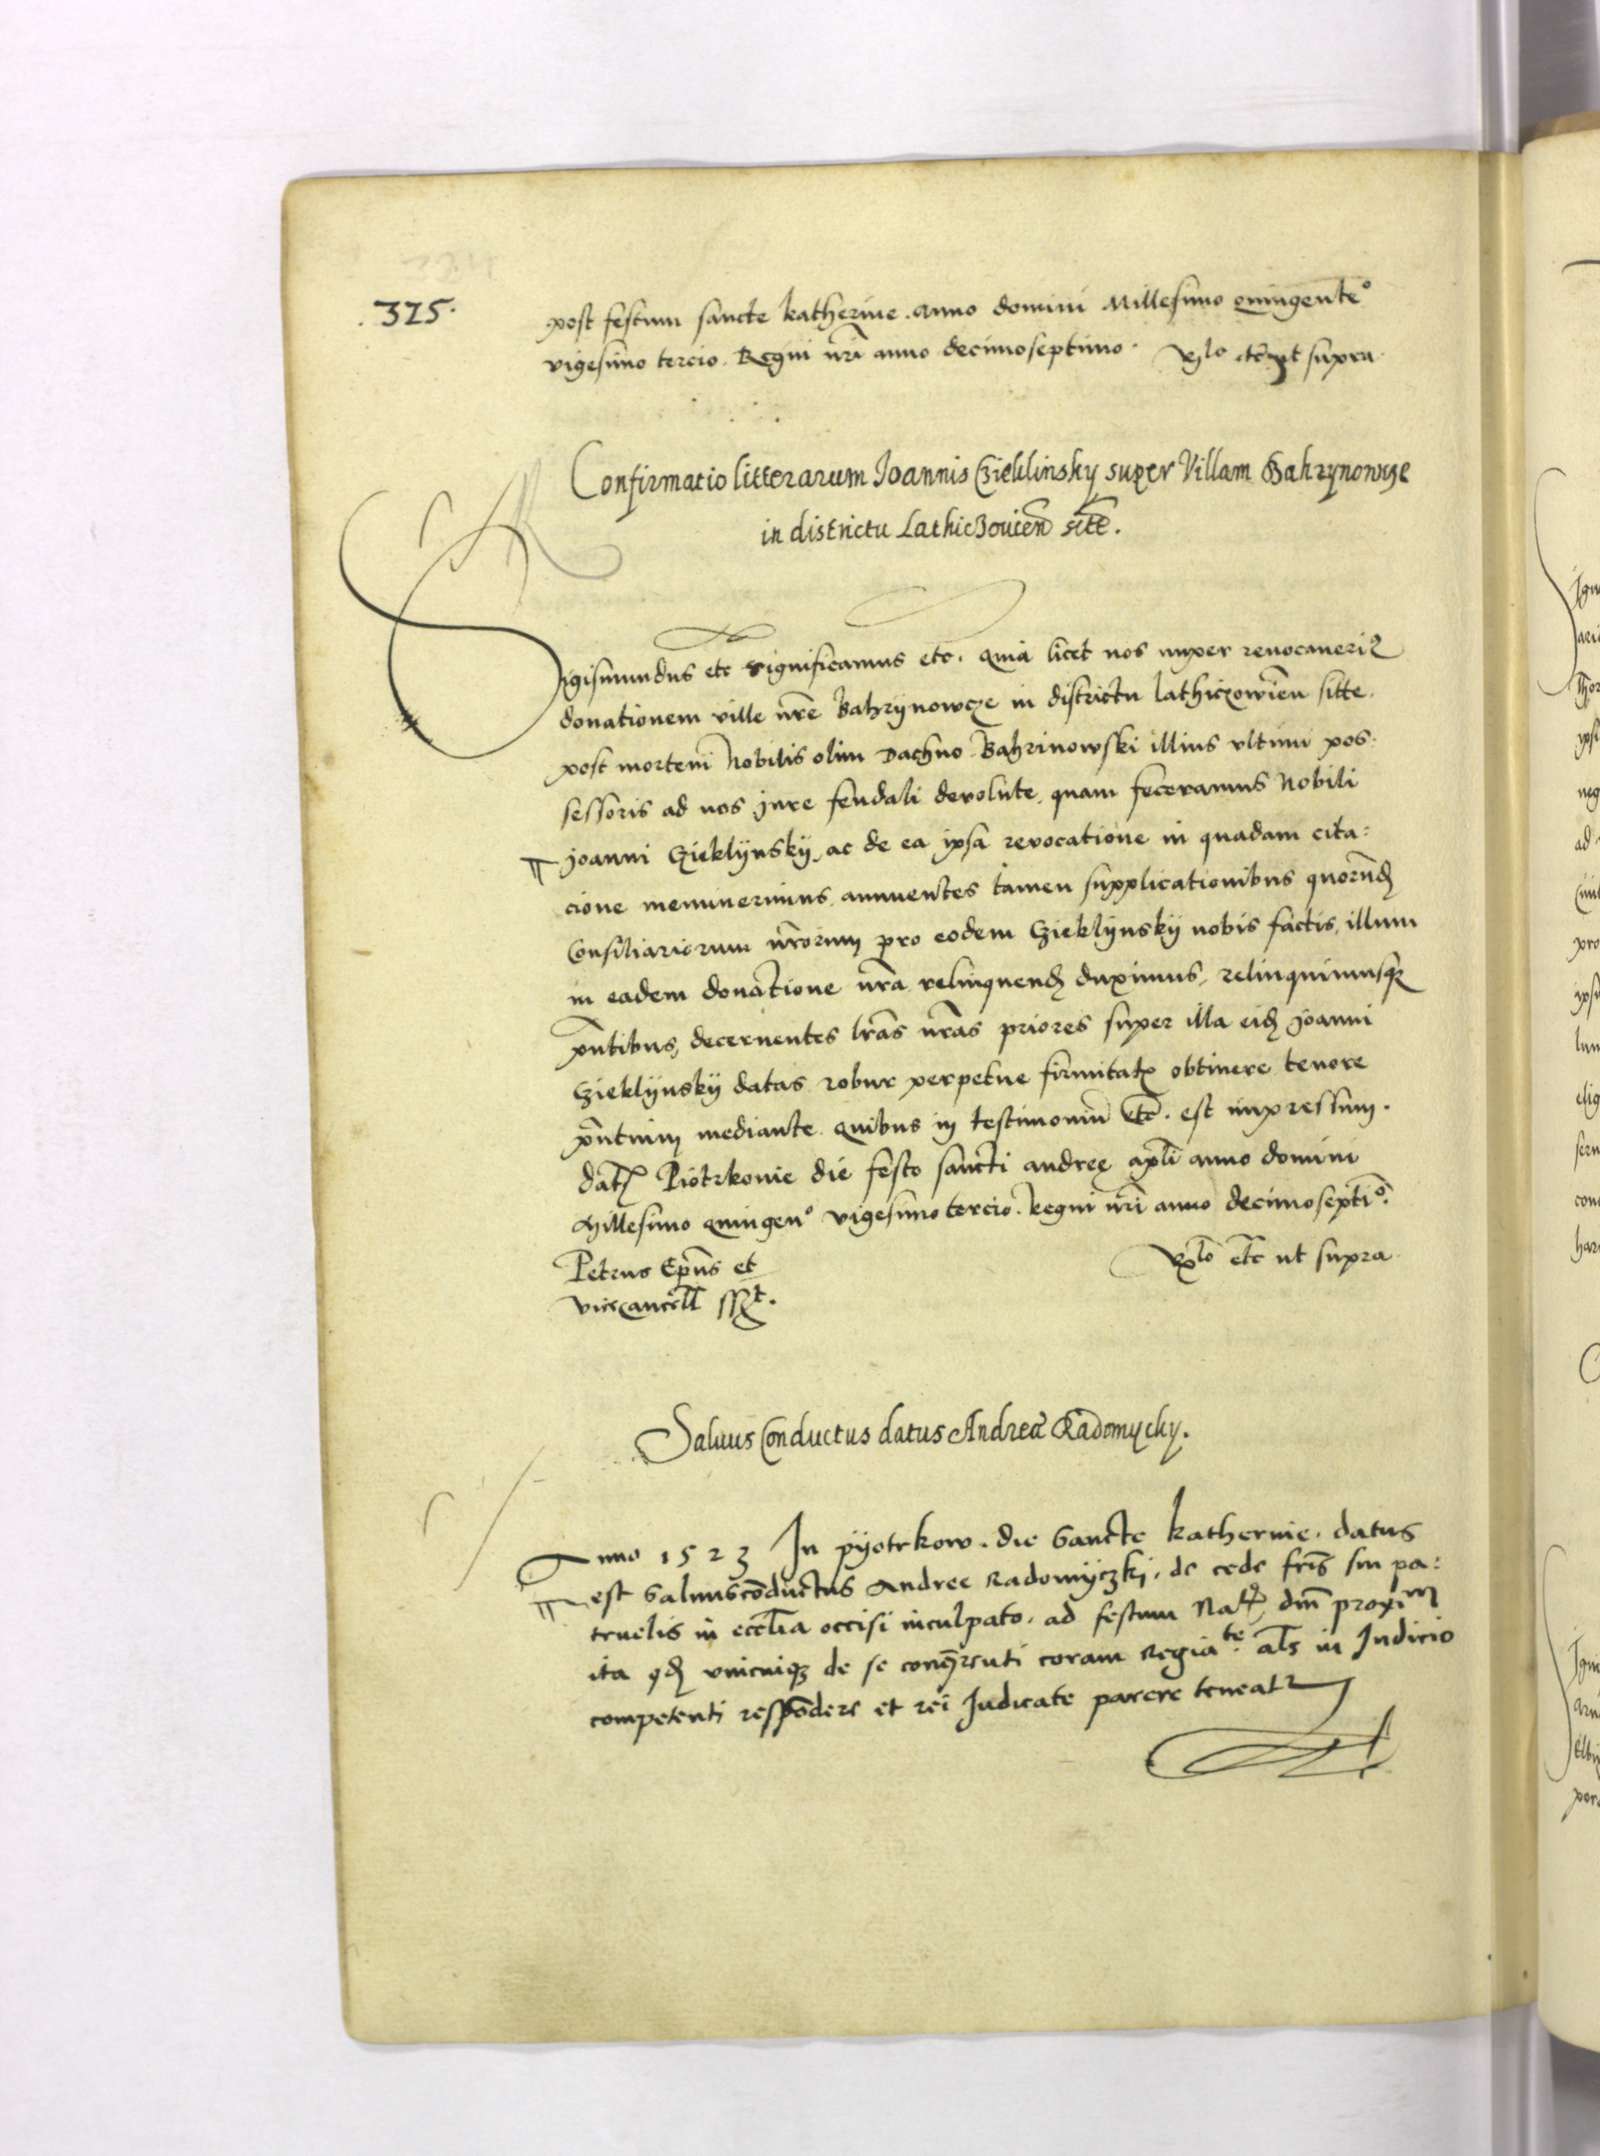 325.
post festum sancte katherine. Anno domini Millesimo quingente°
vigesimo tercio. Regni nri anno decimoseptimo. Rlo etc ut supra.
Confirmatio litterarum Joannis Czieklinsky super Villam Bahrynowcze
in districtu Lathiczovien sitt.
Sigismundus etc significamus etc. Quia licet nos nuper revocaverim9
donationem ville nre Bahrynowcze in districtu lathiczowien sitte.
post mortem Nobilis olim Dachno Bahrinowski illius ultimi pos:
sessoris ad nos jure feudali devolute, quam feceramus Nobili
Joanni Czieklynsky, ac de ea ipsa revocatione in quadam cita:
cione meminerimus. annuentes tamen supplicationibus quorund
Consiliariorum nrorum pro eodem Czieklynsky nobis factis, illum
in eadem donatione nra relinquend duximus, relinquimusq
pntibus, decernentes lras nras priores super illa eid Joanni
Czieklynsky datas robur perpetue firmitatis obtinere tenore
pntium mediante. Quibus in testimoniu etc. est impressum.
dat Piotrkovie die festo sancti andree apli anno domini
Millesimo quingen° vigesimo tercio. Regni nri anno decimosepti°.
Petrus Epus et Rlo etc ut supra
vicecancell sst.
Salvus Conductus datus Andreae Radomycky.
Anno 1523 In pyotrkow. die Sancte katherine. datus
est Salvusconductus Andree Radomyczki. de cede fris sui pa:
truelis in ecclia occisi inculpato. ad festum Nat dni proxim
ita qd unicuiq de se conqrenti coram Regia te. als in Judicio
competenti respodere et rei Judicate parere teneatr